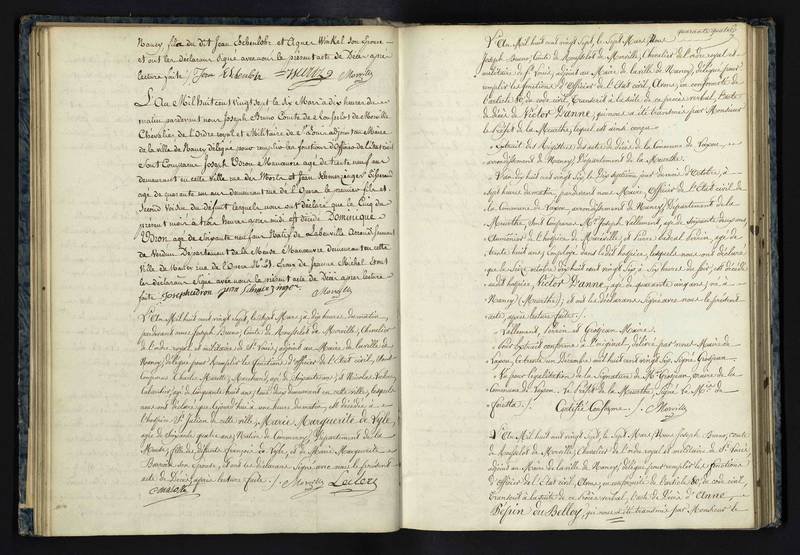 Nancy, fille du dit Jean Eschenlohr et Agnes Winkel son Epouse
et ont les déclarans signé avec nous le présent acte de Décès après
lecture faite. Jean Morville
L'An Mil huit cent vingt sept le six Mars à dix heures du
matin pardevant nous Joseph Bruno Comte de Rousselot de Morville
Chevalier de l'Ordre royal et Militaire de St Louis adjoint au Maire
de la ville de Nancy délégué pour remplir les fonctions d'Officier de l'Etat civil
Sont Comparus Joseph Manœuvre agé de trente neuf ans
demeurant en cette Ville rue et Jean
agé de quarante un ans demeurant rue de l'Opera le premier fils et
second Voisin du défunt lesquels nous ont déclaré que le Cinq du
présent mois à trois heures après midi est décédé Dominique
agé de Soixante neuf ans Natif de arrondissement
de Verdun Département de la Meuse Manœuvre demeurant en cette
Ville de Nancy rue de l'Opera Epoux de Jeanne Michel et ont
les déclarans Signé avec nous le présent acte de Décès après lecture
faite Morville
L'An Mil huit cent vingt Sept, le Sept Mars, à dix heures du matin,
pardevant nous Joseph Bruno, Comte de Rousselot de Morville, Chevalier
de l'ordre royal et militaire de St Louis, adjoint au Maire de la ville de
Nancy, délégué pour Remplir les fonctions d'officier de l'Etat civil, Sont
Comparus Charles Marchand, agé de Soixante ans, et Nicolas
agé de cinquante huit ans, tous deux demeurant en cette ville, lesquels
nous ont déclaré que à une heure du matin, est décédée à
l'hospice St Julien de cette ville, Marie Marguerite de Vyle,
agée de Soixante quatre ans, Native de Commercy, Département de la
Meuse, fille des défunts François de Vyle, et de Marie Marguerite
son épouse, et ont les déclarans Signé avec nous le présent
acte de Décès, après lecture faite. /. Morville Leclerc
quarante quatre
L'An Mil huit cent vingt Sept, le Sept Mars, Nous
Joseph Bruno, Comte de Rousselot de Morville, Chevalier de l'ordre royal et
militaire de St Louis, adjoint au Maire de la ville de Nancy, délégué pour
remplir les fonctions d'Officier de l'Etat Civil, Avons, en conformité de
l'article 80 du code civil, Transcrit à la suite de ce procès verbal, l'acte
de Décès de Victor Danne, qui nous a été transmis par Monsieur
le Préfet de la Meurthe, lequel est ainsi conçu
« Extrait des Registres des actes de Décès de la Commune de Laxou,
« arrondissement de Nancy, Département de la Meurthe.
« L'an dix huit cent vingt Six, le dix Septième jour du mois d'Octobre, à
« Sept heures du matin, pardevant nous Maire, Officier de l'Etat civil de
« la Commune de Laxou, arrondissement de Nancy, Département de la
« Meurthe, Sont Comparus Mr Joseph Lallement, agé de Soixante deux ans,
« Aumonier de l'hospice de Maréville, et Pierre Lorrain, agé de
« trente huit ans, Employé dans le dit hospice, lesquels nous ont déclaré
« que le Seize octobre dix huit cent vingt Six, à Six heures du soir, est décédé
« au dit hospice, Victor Danne, agé de quarante cinq ans, né à
« Nancy (Meurthe), et ont les déclarans Signé avec nous le présent
« acte, après lecture faite. /.
« Lallement, Lorrain et Grosjean Maire.
« Pour Extrait conforme à l'original, délivré par nous Maire de
« Laxou, le trente un Décembre mil huit cent vingt Six, Signé Grosjean.
« Vu pour légalisation de la Signature de Mr Grosjean, maire de la
« Commune de Laxou. Le Préfet de la Meurthe, Signé Le Mis de
« Foresta. /. Certifié Conforme. /. Morville
L'An Mil huit cent vingt Sept, le Sept Mars, Nous Joseph Bruno, comte
de Rousselot de Morville, Chevalier de l'ordre royal et militaire de St Louis,
adjoint au Maire de la ville de Nancy, délégué pour remplir les fonctions
d'Officier de l'Etat civil, Avons, en conformité de l'article 80, du code civil,
Transcrit à la suite de ce Procès verbal, l'acte de Décès d'Anne,
Pepin du Belloy, qui nous a été transmis par Monsieur le